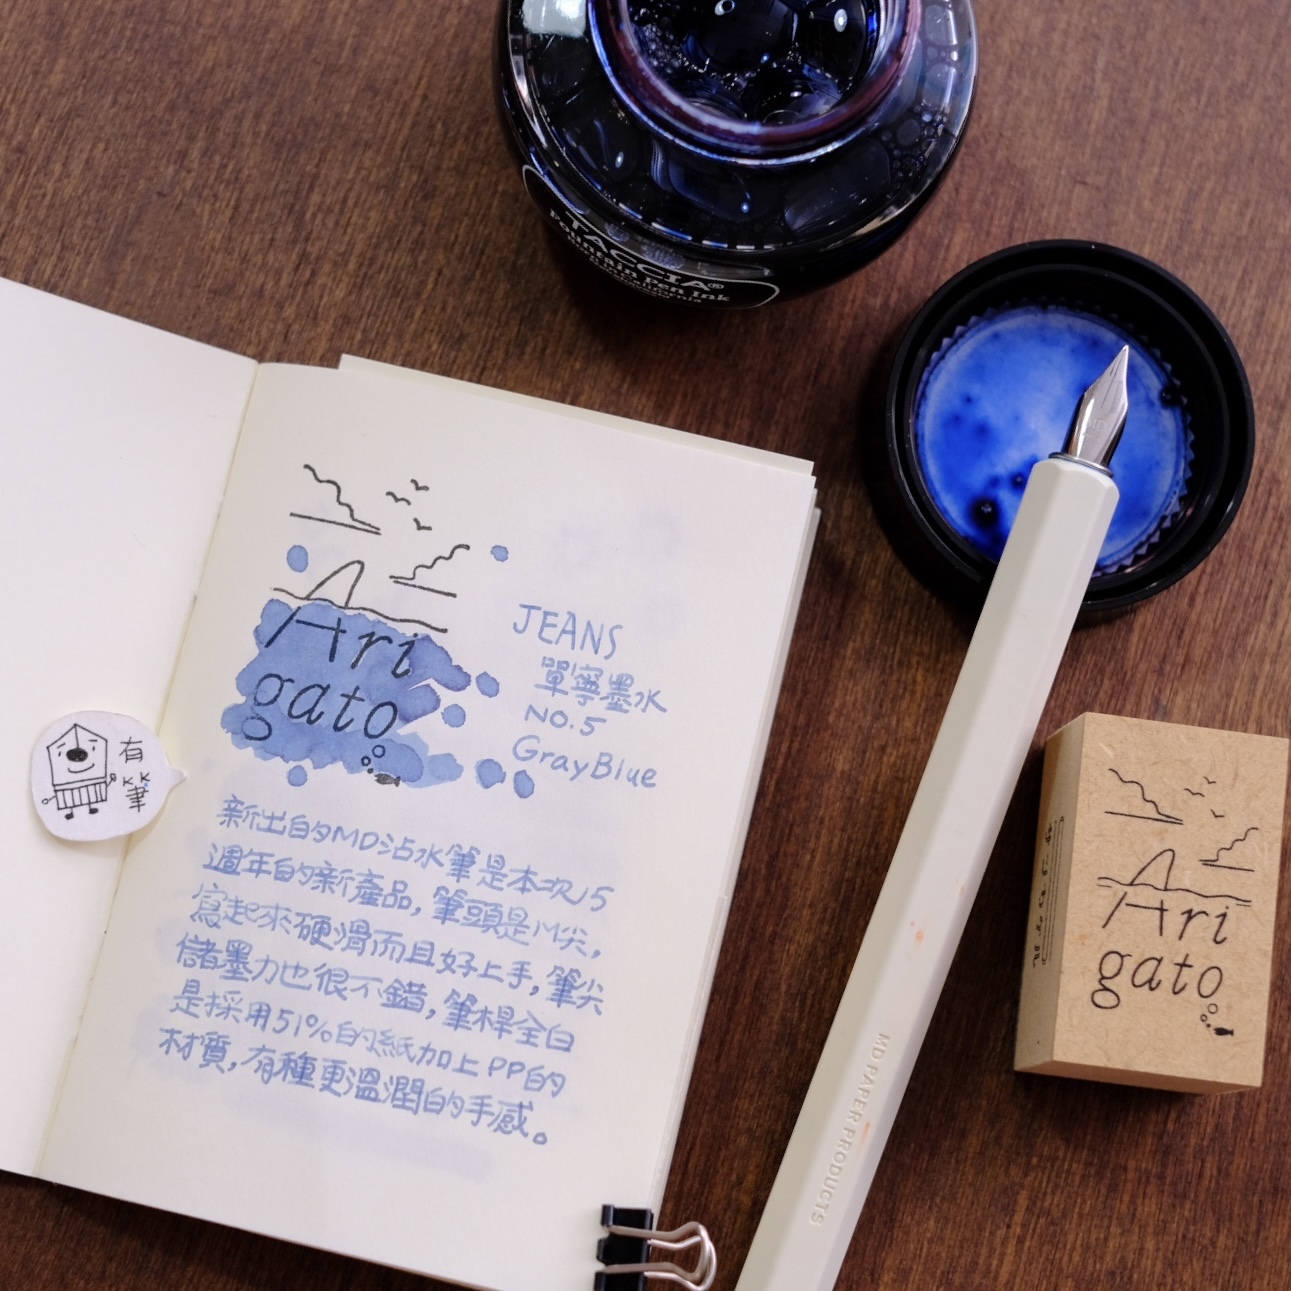 TACCIA®
Fountain Pen Ink
California
Ari
gato
JEANS
單寧墨水
NO.5
GrayBlue
有
筆
新出的MD沾水筆是本次15
週年的新產品,筆頭是M尖,
寫起來硬滑而且好上手,筆尖
儲墨力也很不錯,筆桿全白
是採用51%的紙加上PP的
材質,有種更溫潤的手感。
MD PAPER PRODUCTS
Ari
gato